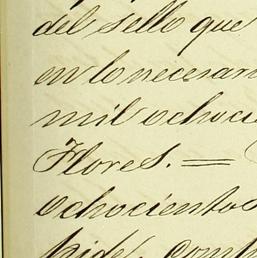 del sello que
en lo necesari
mil ochocie
Flores. =
ochocientos
pide, comp